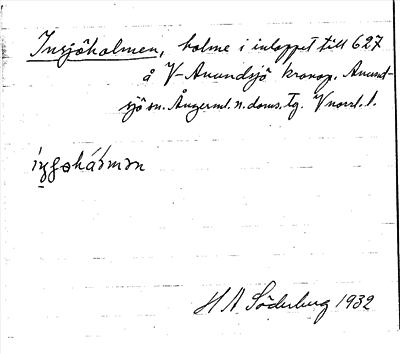 Insjöholmen, holme i inloppet till 627
å V-Anundsjö kronop. Anund-
sjö sn. Ångerml. n. doms. tg. Vnorrl. l.
H A Söderberg 1932